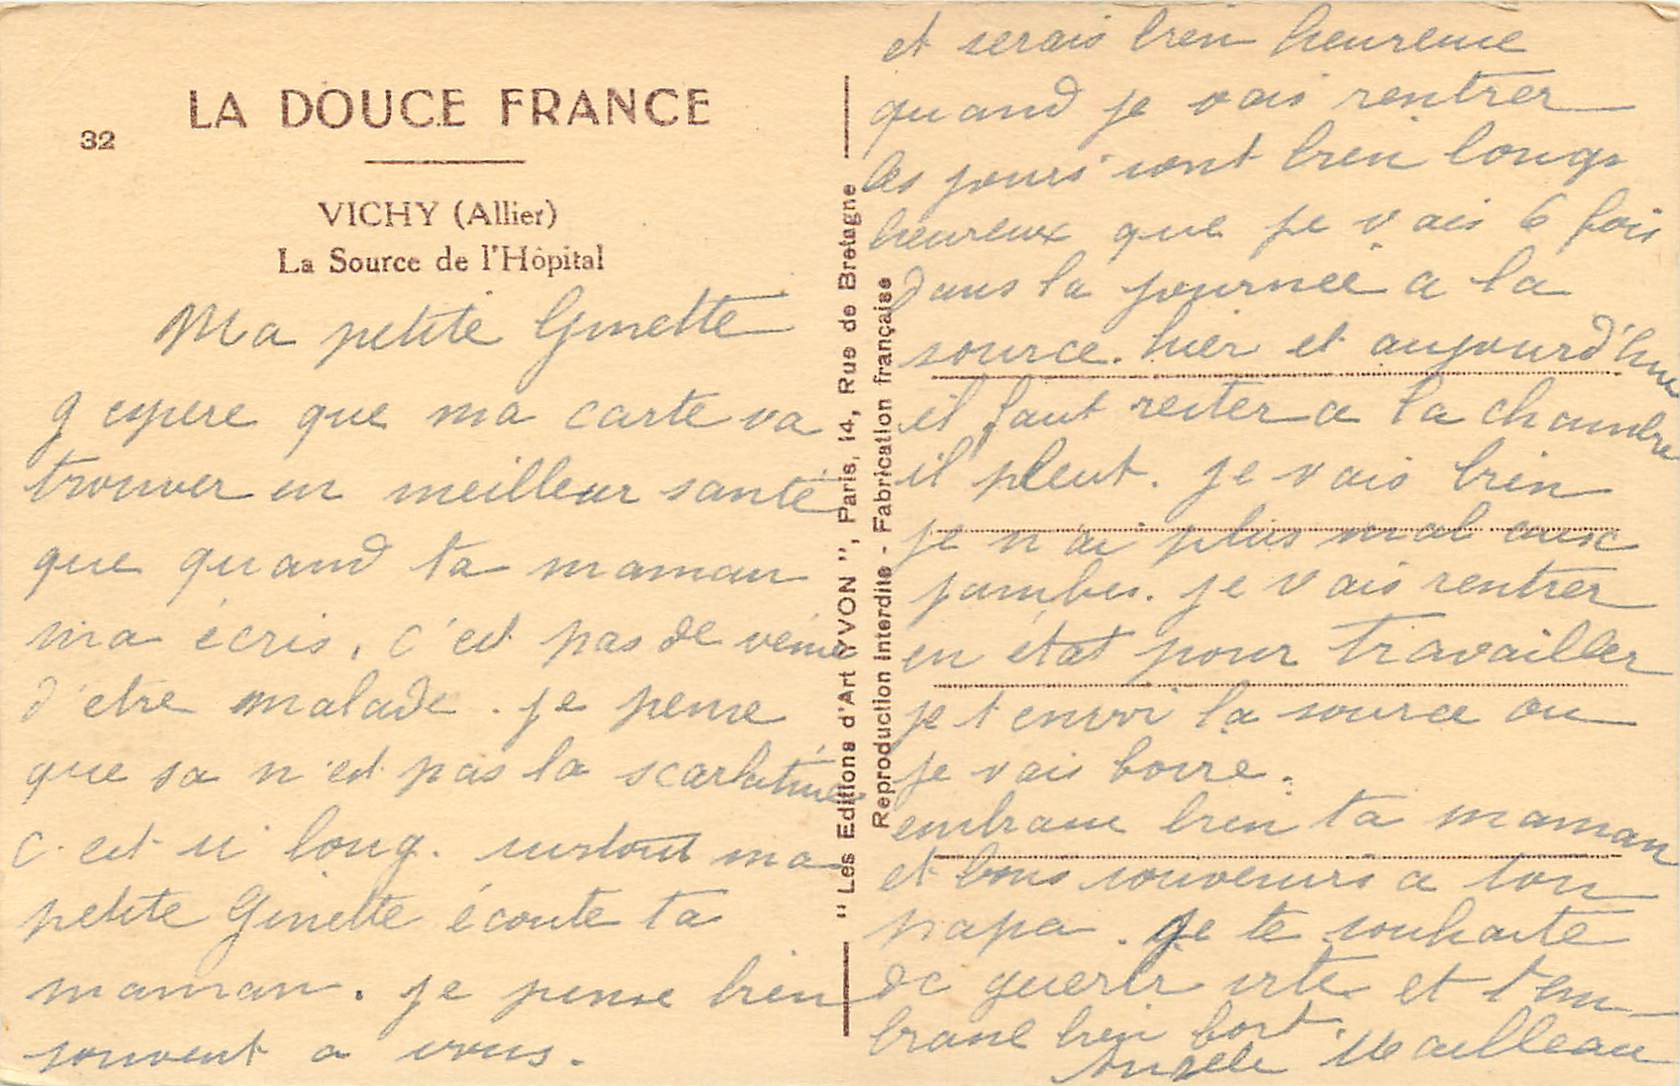 32
LA DOUCE FRANCE
VICHY (Allier)
La Source de l'Hôpital
Ma petite Ginette
j espere que ma carte va
trouver en meilleur santé
que quand ta maman
m'a écris. c'est pas de veine
d'etre malade. je pense
que sa n'est pas la scarlatine
c. est si long. surtout ma
petite Ginette écoute ta
maman. je pense bien
souvent a vous.
"Les Editions d'Art YVON", Paris, 14, Rue de Bretagne
Reproduction Interdite - Fabrication française
et serais bien heureuse
quand je vais rentrer
les jours sont bien longs
heureux que je vais 6 fois
dans la journée a la
source. hier et aujourd'hui
il faut rester a la chambre
il pleut. je vais bien
je n'ai plus mal aux
jambes. je vais rentrer
en état pour travailler
je t envoi la source ou
je vais boire.
embrasse bien ta maman
et bons souvenirs a ton
papa. Je te souhaite
de guerir vite et t'em
brasse bien fort.
Angele